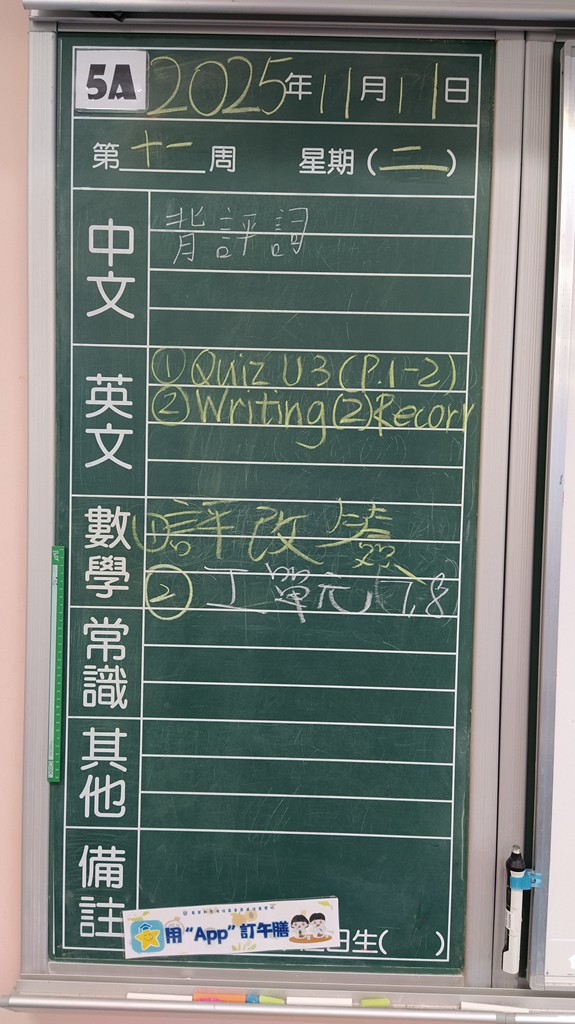 5A 2025年11月11日
第十一周 星期(二)
中文
背評詞
英文
① Quiz U3 (P.1-2)
② Writing(2) Recorr
數學
① 評改
② 工單元 7,8
常識
其他
備註
用“App”訂午膳
日生( )